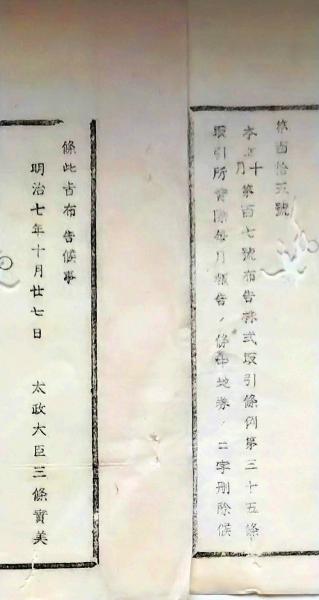 第百拾五號
本年十月第百七號布告株式取引條例第三十五條
取引所實際每月報告ノ條中地券ノ二字刪除候
條此旨布告候事
明治七年十月廿七日　太政大臣三條實美